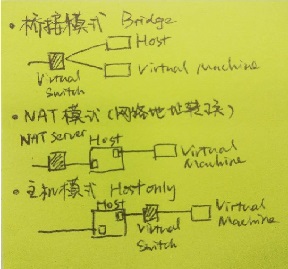 • 桥接模式 Bridge
Host
Virtual Switch
Virtual Machine
• NAT模式(网络地址转换)
NAT server
Host
Virtual Machine
• 主机模式 Host only
Host
Virtual Switch
Virtual Machine